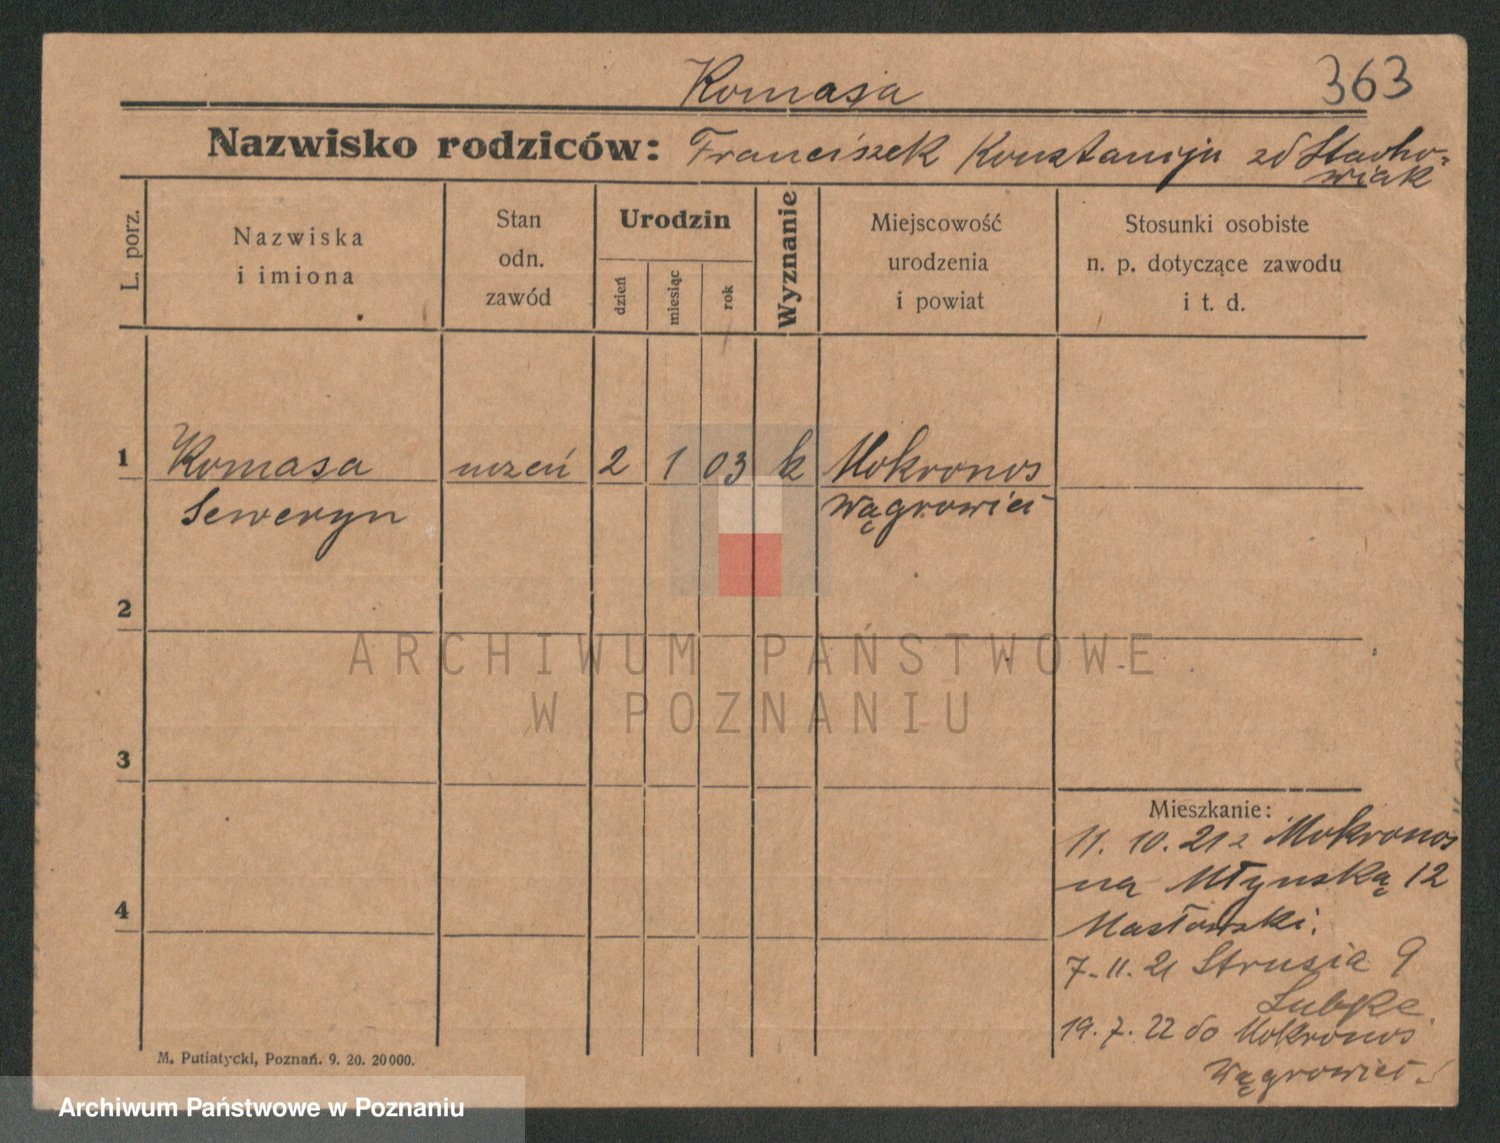 Komasa
363
Nazwisko rodziców: Franciszek Konstancja zd Stacho-
wiak
L. porz.
Nazwiska
i imiona
Stan
odn.
zawód
Urodzin
dzień
miesiąc
rok
Wyznanie
Miejscowość
urodzenia
i powiat
Stosunki osobiste
n. p. dotyczące zawodu
i t. d.
1 Komasa uczeń 2 1 03 k Mokronos
Seweryn Wągrowiec
2
3
4
ARCHIWUM PAŃSTWOWE
W POZNANIU
Mieszkanie:
11. 10. 21 z Mokronos
na Młyńską 12
Masłowski.
7. 11. 21 Strusia 9
19. 7. 22 do Mokronos
Wągrowiec
M. Putiatycki, Poznań. 9. 20. 20000.
Archiwum Państwowe w Poznaniu